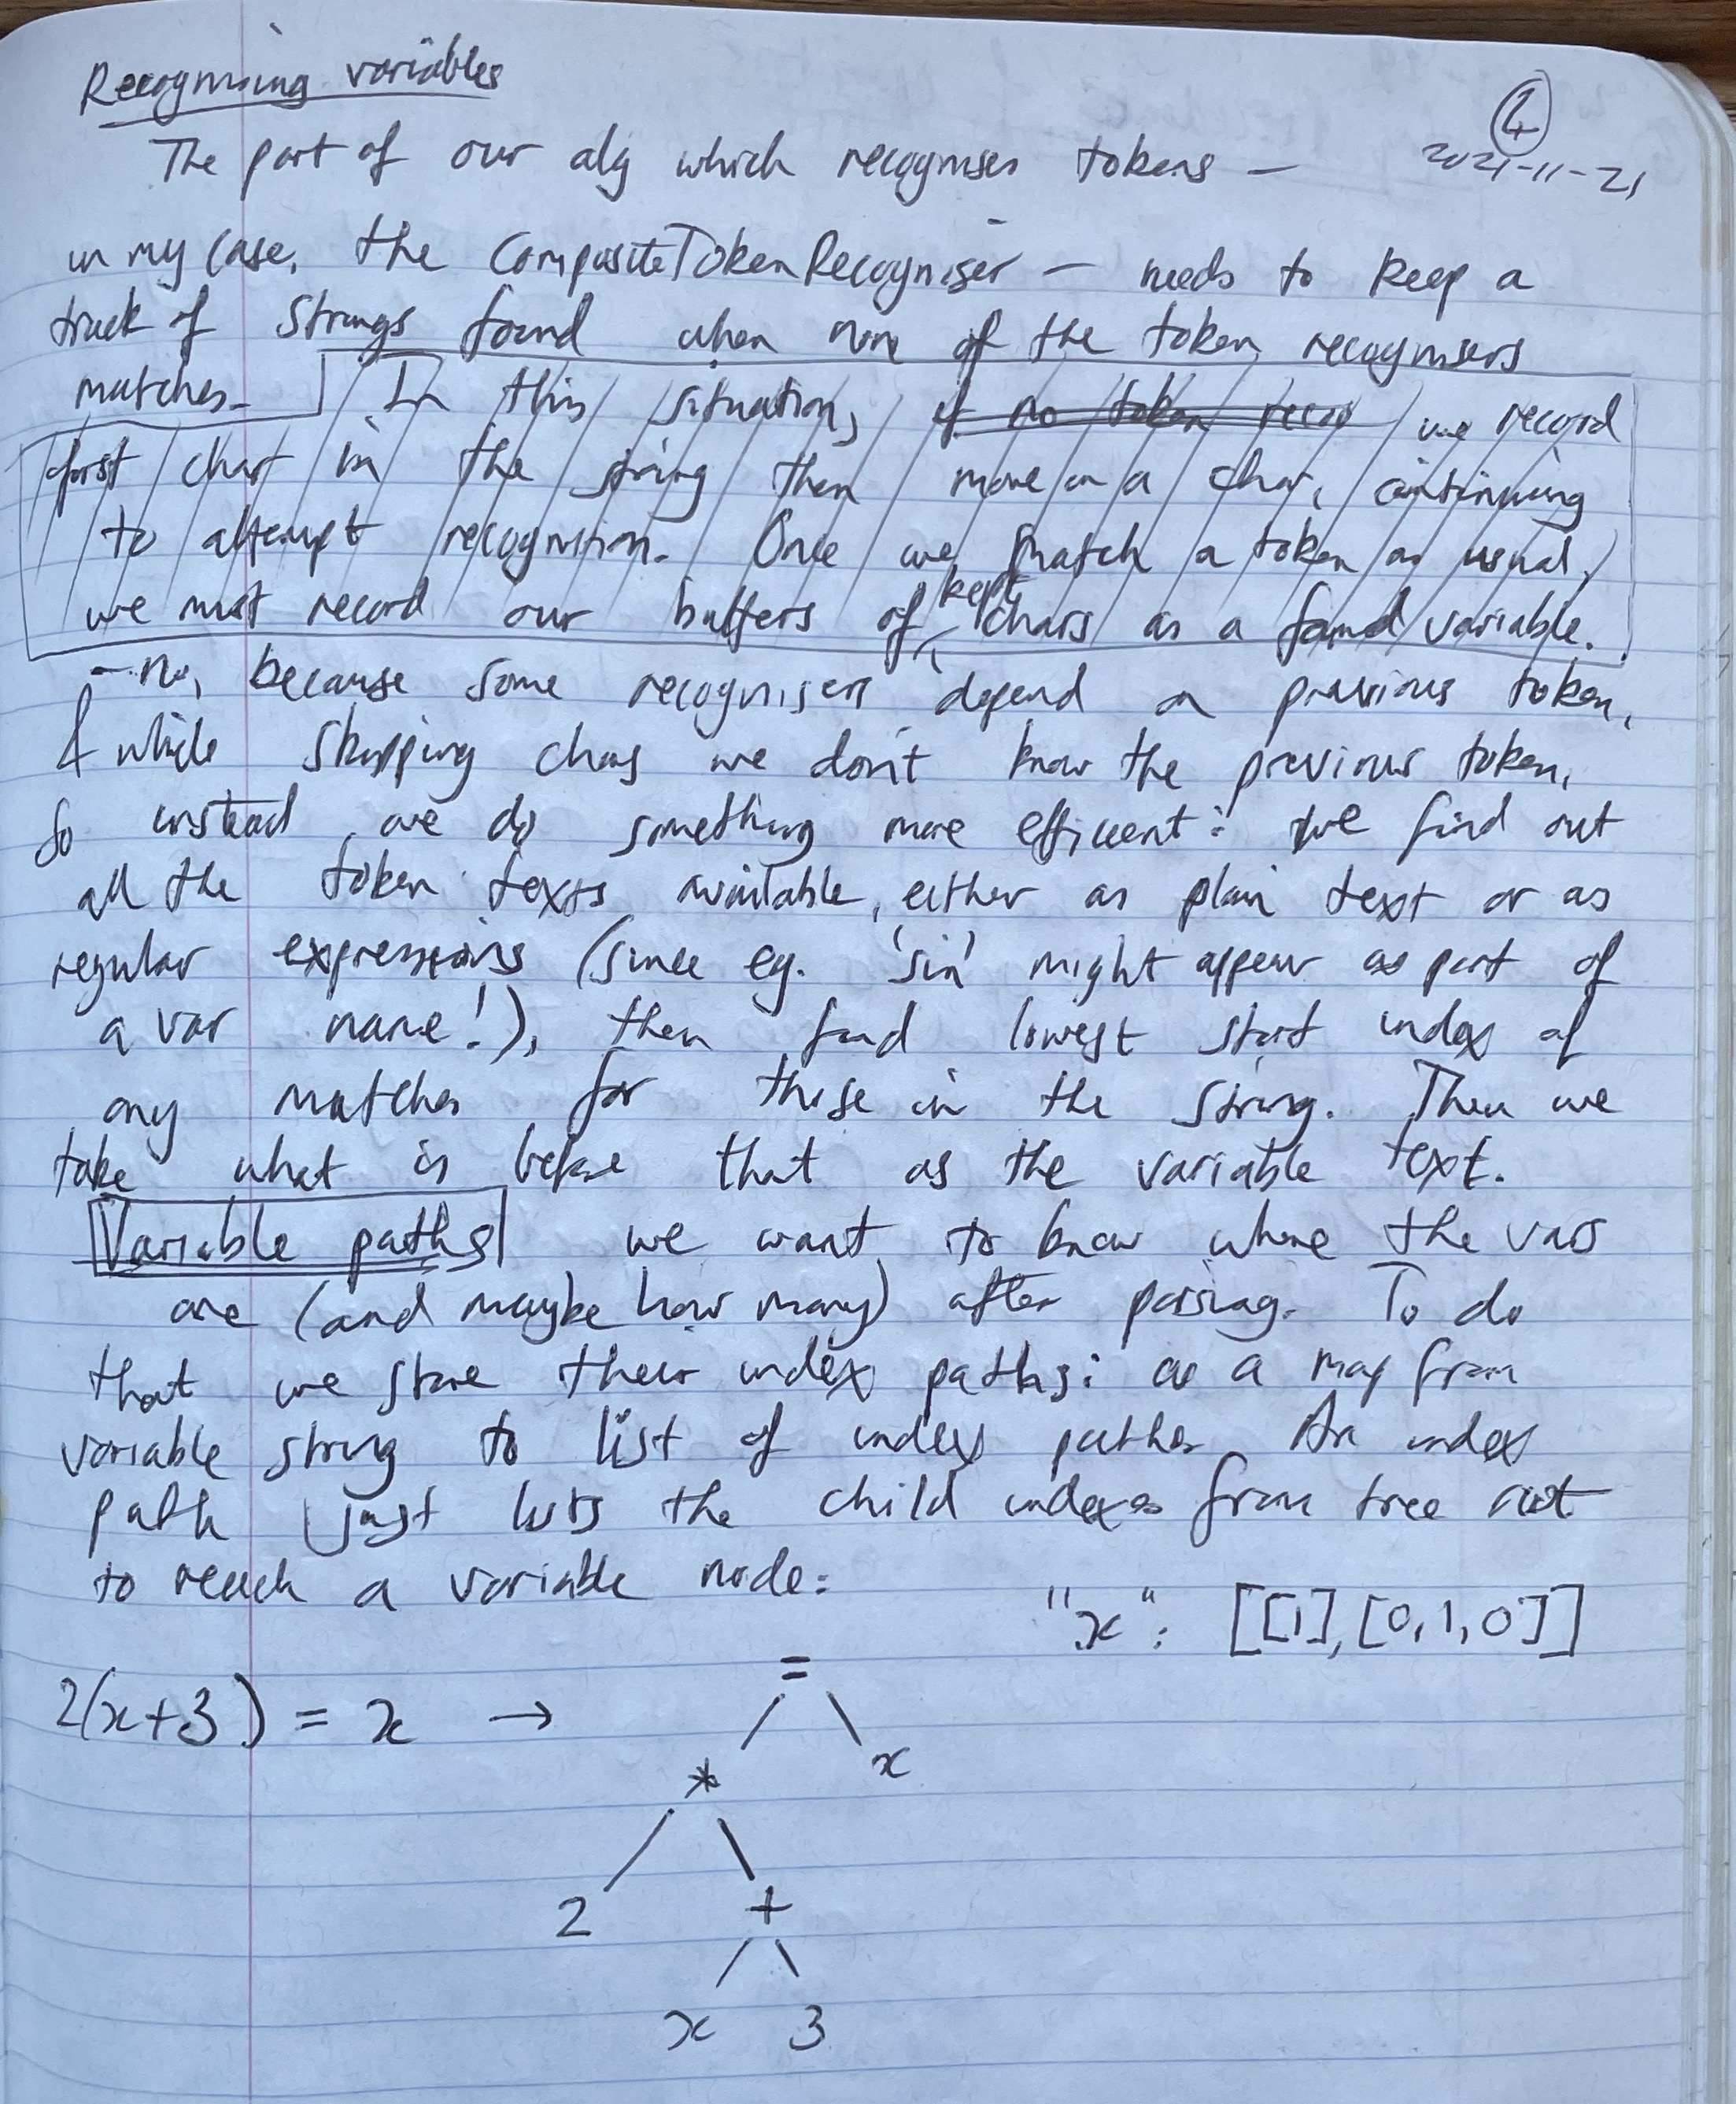 Recognising variables
④
The part of our alg which recognises tokens —
2021-11-21
in my case, the CompositeTokenRecogniser — needs to keep a
track of strings found when none of the token recognisers
matches. In this situation, if no token reco we record
first char in the string then move on a char, continuing
to attempt recognition. Once we match a token as usual,
we must record our buffers of kept chars as a found variable.
- no, because some recognisers depend on previous token,
& while skipping chars we don't know the previous token,
So instead, we do something more efficient: we find out
all the token texts available, either as plain text or as
regular expressions (since eg. 'sin' might appear as part of
a var name!), then find lowest start index of
any matches for these in the string. Then we
take what is before that as the variable text.
Variable paths we want to know where the vars
are (and maybe how many) after parsing. To do
that we store their index paths: as a map from
variable string to list of index paths. An index
path just lists the child indexes from tree root
to reach a variable node:
"x": [[1],[0,1,0]]
2(x+3) = x → =
* x
2 +
x 3